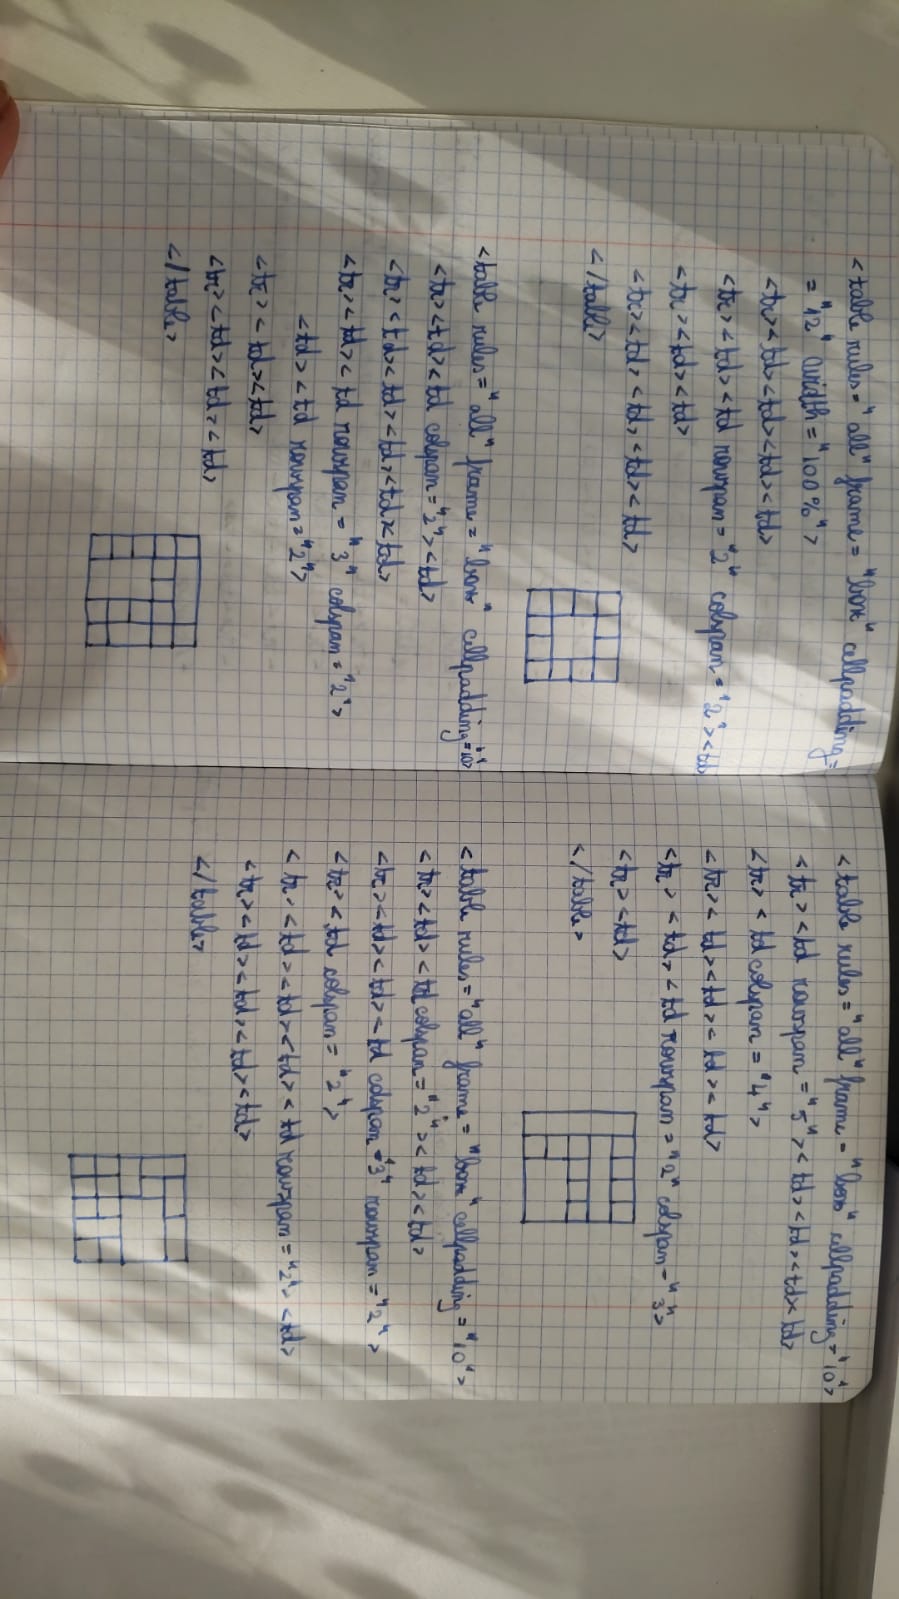 <table rules="all" frame="box" cellpadding=
="12" width="100%">
<tr><td><td><td><td>
<tr><td><td rowspan="2" colspan="2"><td
<tr><td><td>
<tr><td><td><td><td>
</table>
<table rules="all" frame="box" cellpadding="10">
<tr><td><td colspan="2"><td>
<tr><td><td><td><td><td>
<tr><td><td rowspan="3" colspan="2">
<td><td rowspan="2">
<tr><td><td>
<tr><td><td><td>
</table>
<table rules="all" frame="box" cellpadding="10">
<tr><td rowspan="5"><td><td><td><td>
<tr><td colspan="4">
<tr><td><td><td><td>
<tr><td><td rowspan="2" colspan="3">
<tr><td>
</table>
<table rules="all" frame="box" cellpadding="10">
<tr><td><td colspan="2"><td><td>
<tr><td><td><td colspan="3" rowspan="2">
<tr><td colspan="2">
<tr><td><td><td><td rowspan="2"><td>
<tr><td><td><td><td>
</table>